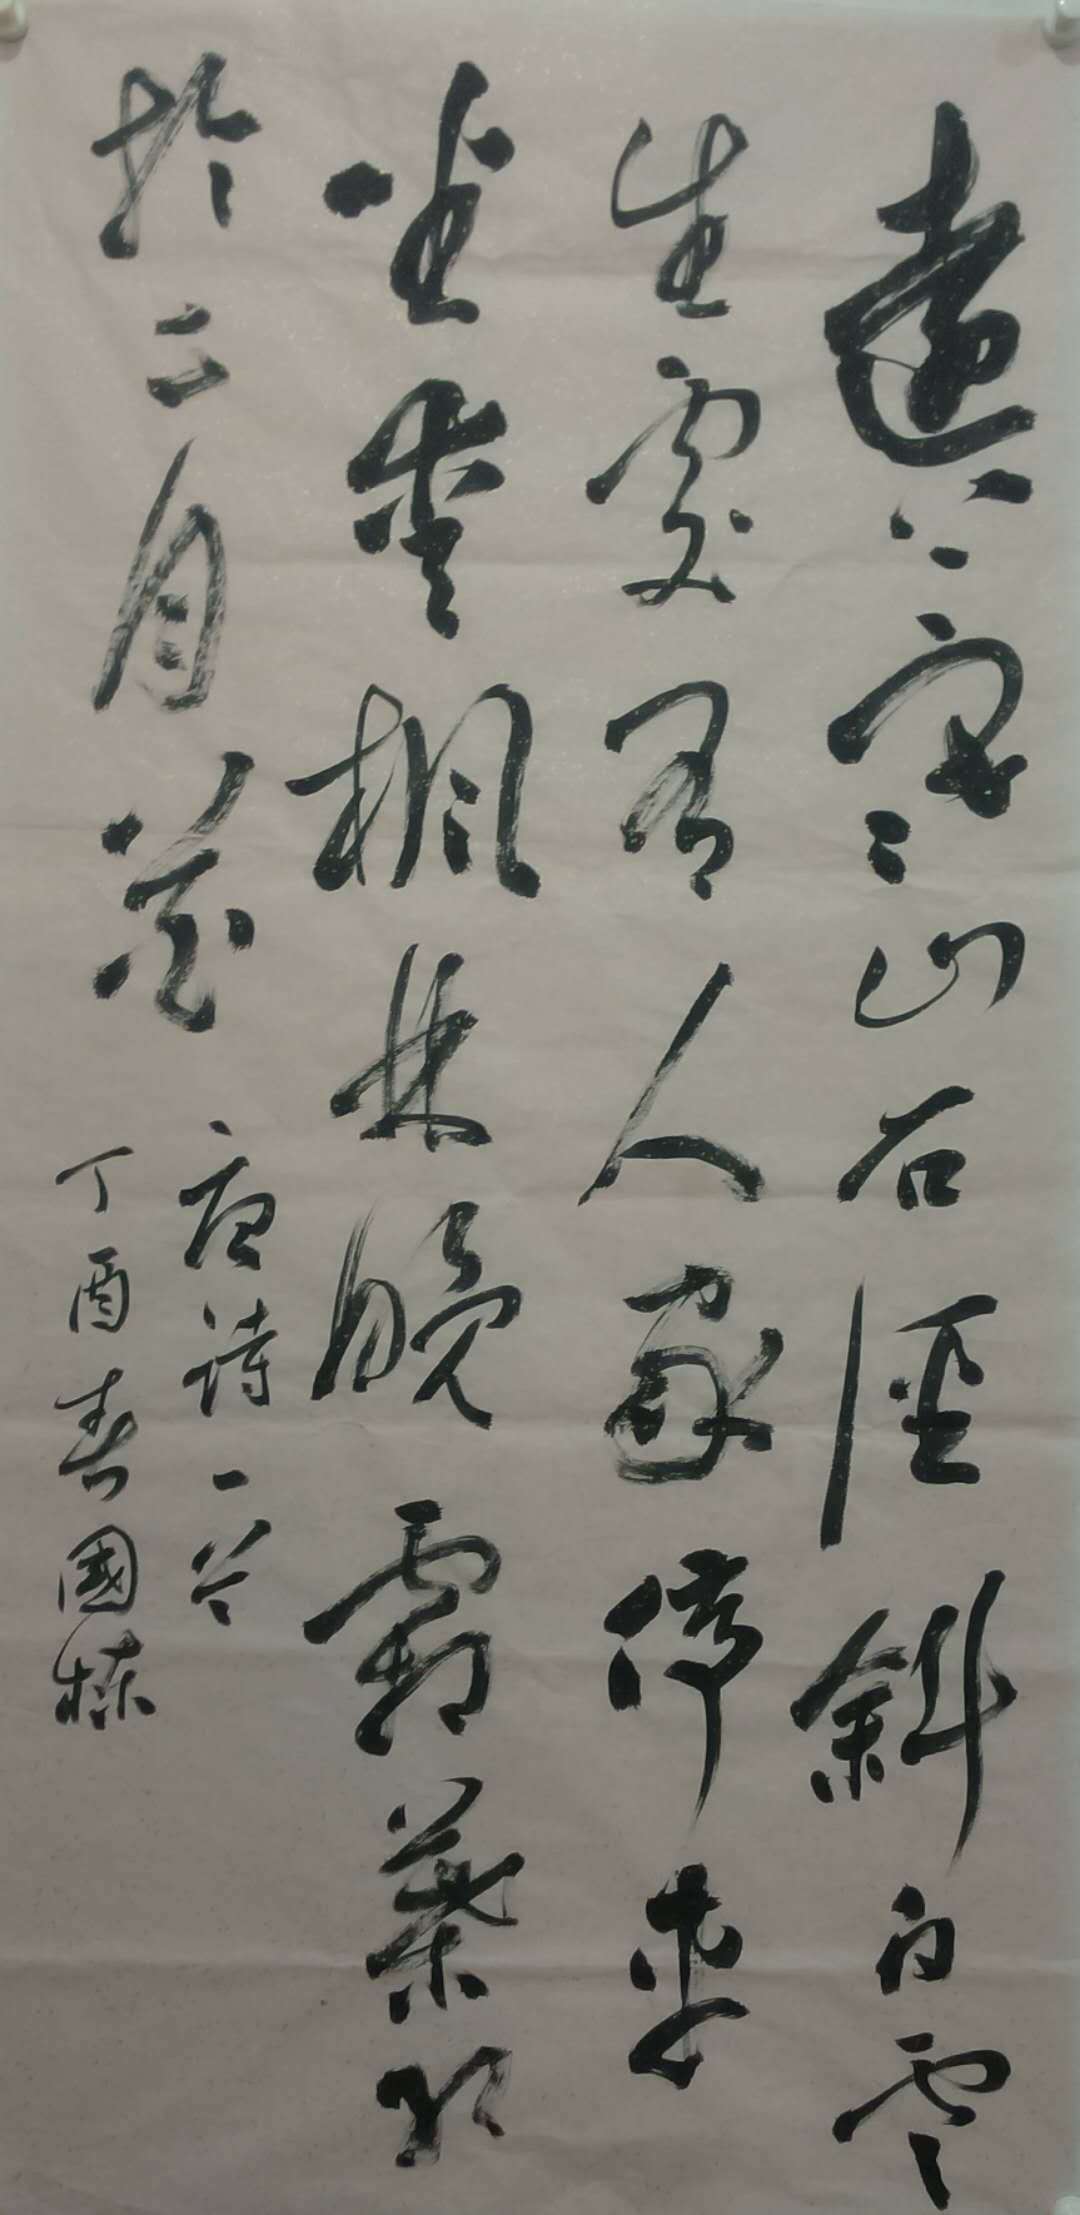 遠上寒山石徑斜白雲
生處有人家停車
坐愛楓林晚霜葉紅
於二月花
唐詩一首
丁酉春國棟